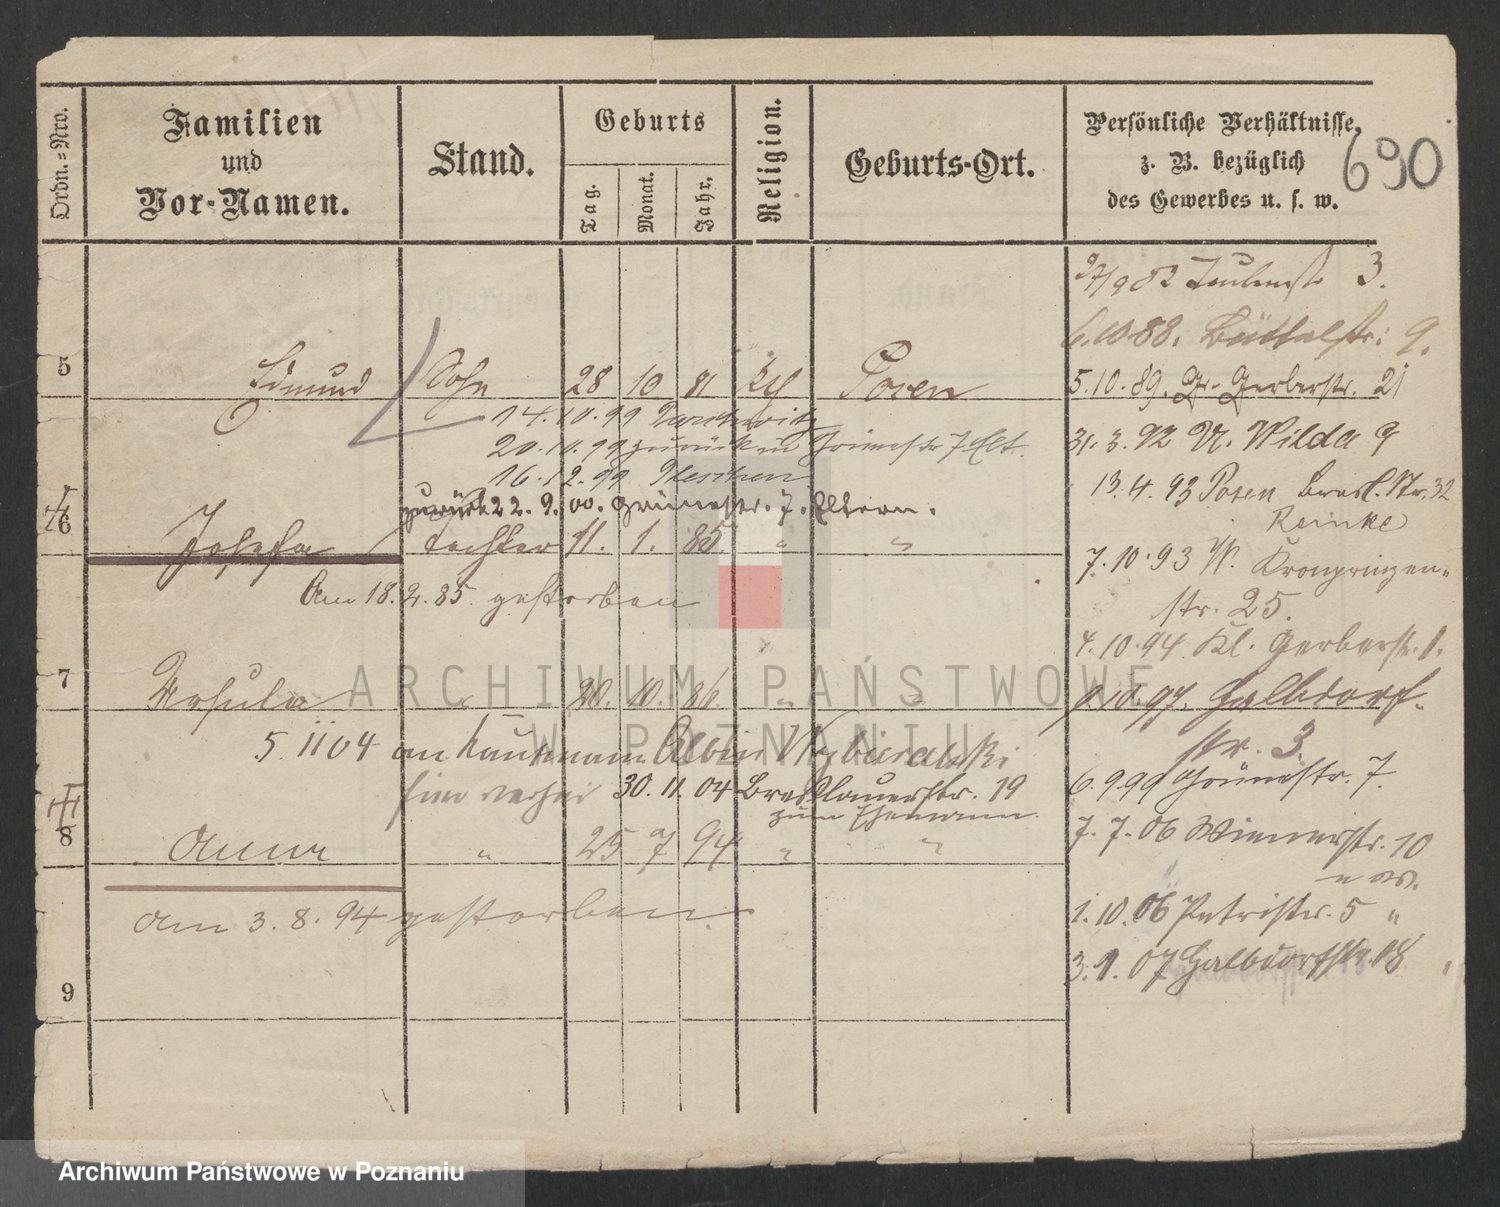 Ordn.=Nro.
Familien
und
Vor-Namen.
Stand.
Geburts
Tag.
Monat.
Jahr.
Religion.
Geburts-Ort.
Persönliche Verhältnisse,
z. B. bezüglich
des Gewerbes u. s. w.
690
3.
6.10.88. Büttelstr: 9.
5 Edmund Sohn 28 10 81 Posen
5.10.89. Gr. Gerberstr. 21
14.10.99
31.3.92 Wilda 9
20. 99 zurück
16.12.99 Pleschen
13.4.93 Posen Bresl. Str. 32
zurück 22.9.00. Grünestr. 7. Eltern.
Reinke
6 Josefa Tochter 11. 1. 85. " "
7.10.93 W. Kronprinzen-
str. 25.
Am 18.2.85. gestorben
4.10.94. Kl. Gerberstr. 1.
7 Ursula " 20. 10. 86. " "
10.97. Halbdorf-
str. 3.
5. 11 04 an Kaufmann Albin
6.9.99 Grünestr. 7.
hier verhei 30.11.04 Breslauerstr. 19
zum Ehemann.
7.7.06 Wienerstr. 10
8 Anna " 25 7 94 " "
1.10.06 Petristr. 5 "
am 3.8.94 gestorben.
07 Halbdorfstr. 18
9
ARCHIWUM PAŃSTWOWE
W POZNANIU
Archiwum Państwowe w Poznaniu